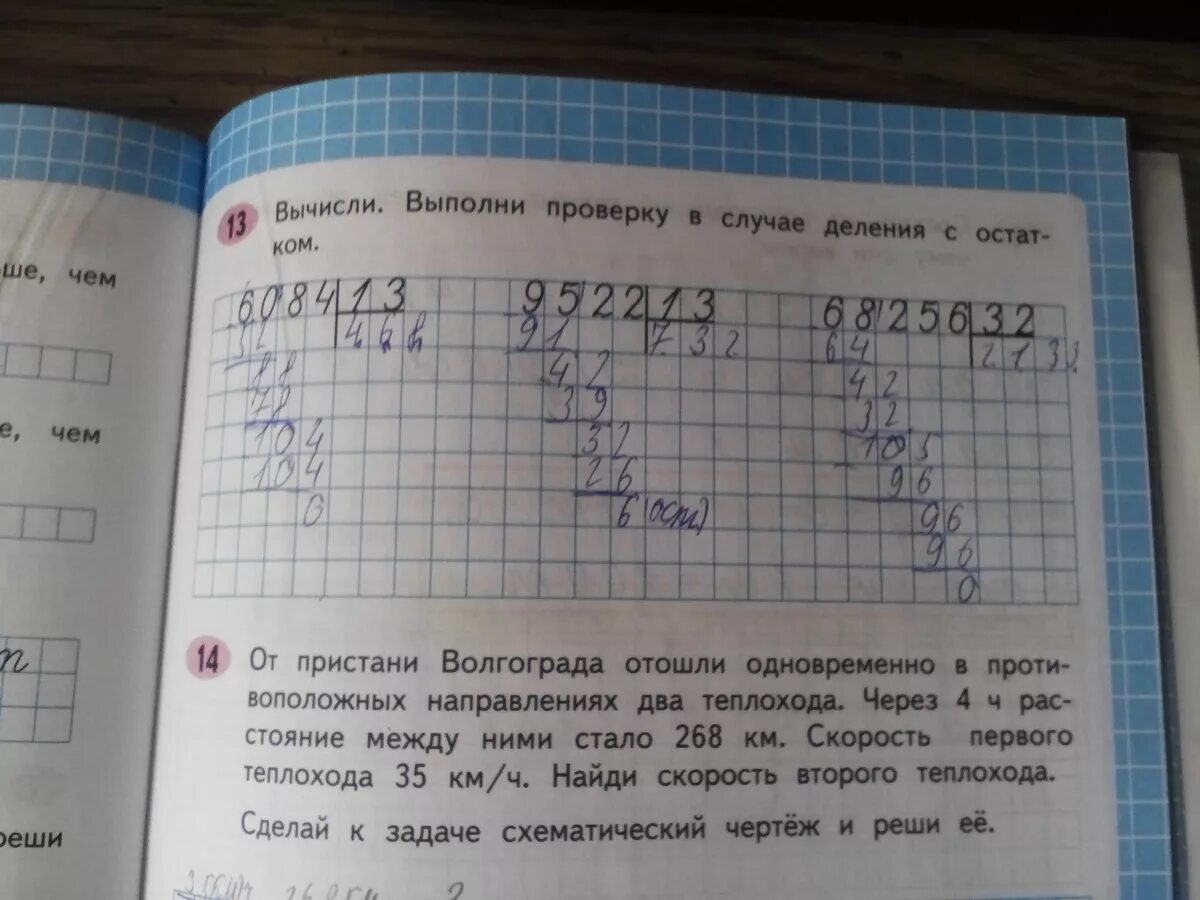 ше, чем
е, чем
реши
13 Вычисли. Выполни проверку в случае деления с остат-
ком.
6084 13 9522 13 68256 32
52 468 91 732 64 2133
88 42 42
78 39 32
104 32 105
104 26 96
0 6 (ост) 96
96
0
14 От пристани Волгограда отошли одновременно в проти-
воположных направлениях два теплохода. Через 4 ч рас-
стояние между ними стало 268 км. Скорость первого
теплохода 35 км/ч. Найди скорость второго теплохода.
Сделай к задаче схематический чертёж и реши её.
?